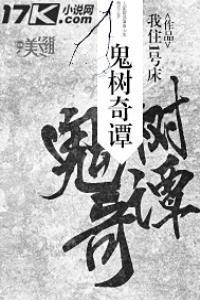 17K小说网
鬼树奇谭
我住1号床
作品
鬼树奇谭